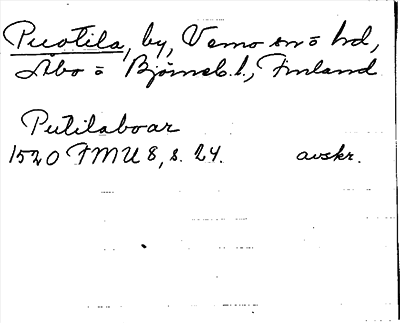 Puotila, by, Vemo sn = hd,
Åbo = Björneb. l., Finland
Putilaboar
1520 FMU 8, s. 24. avskr.